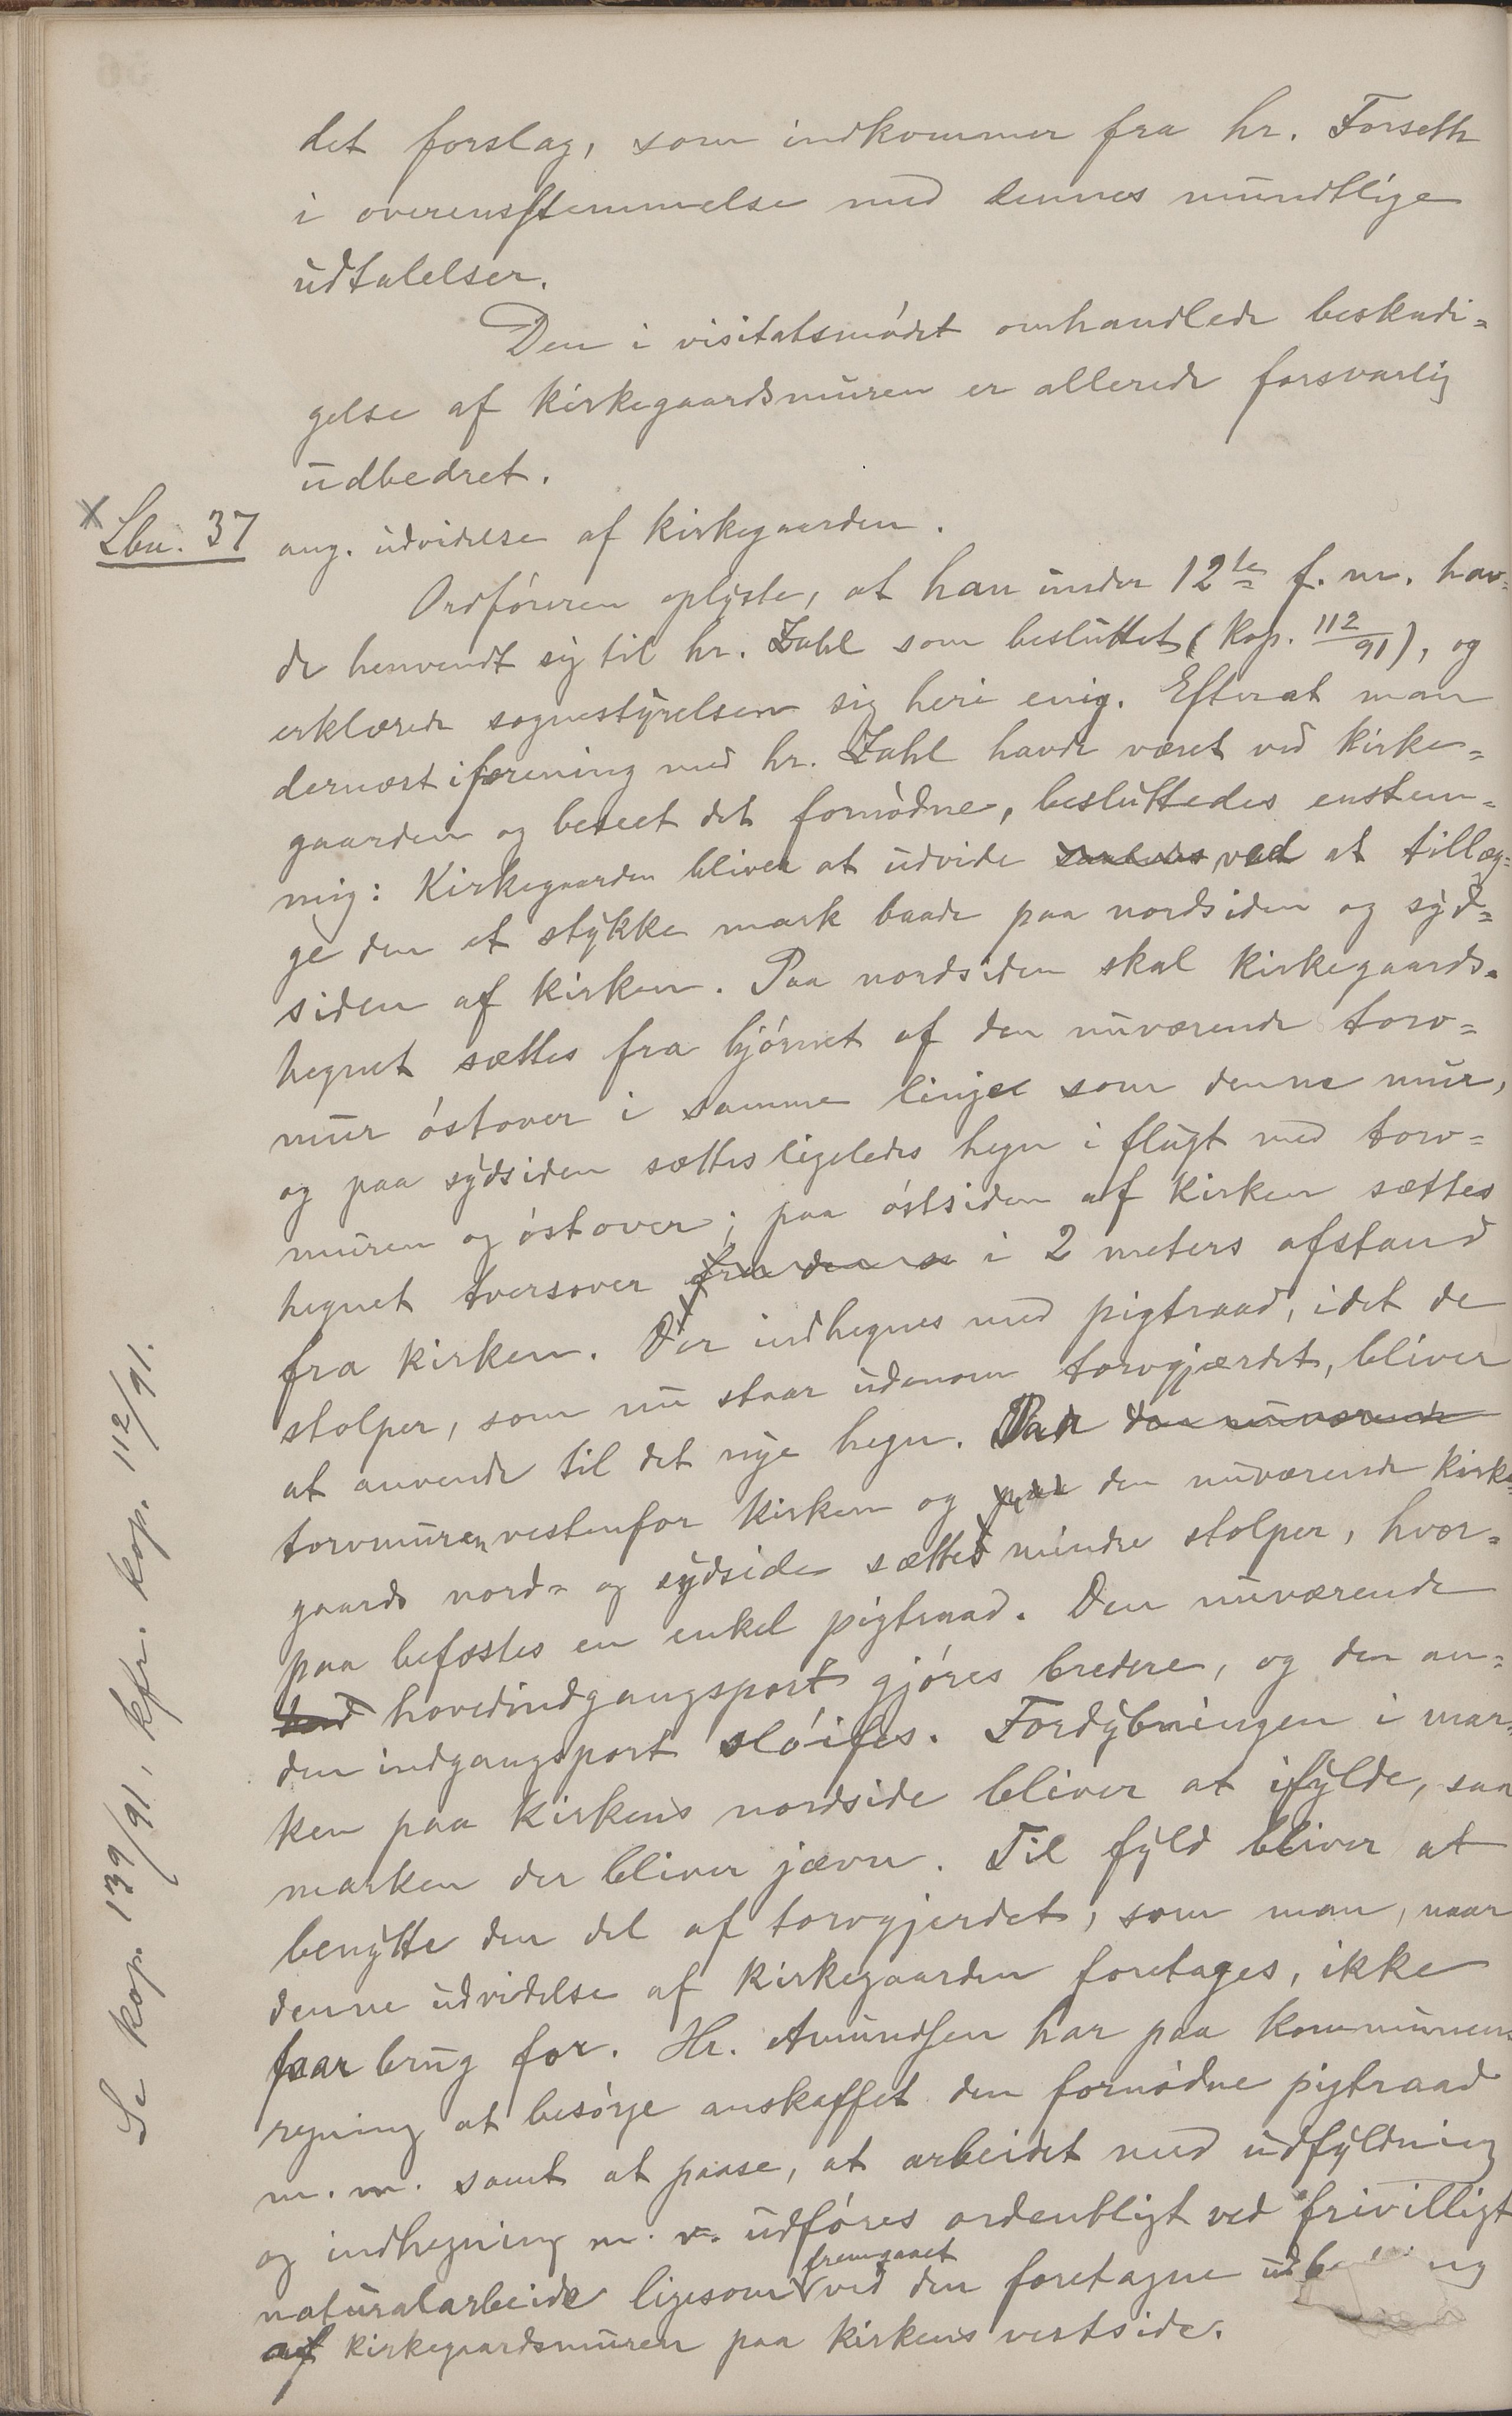 det forslag, som indkommer fra hr. Forseth
i overensstemmelse med dennes mundtlige
udtalelser.
Den i visitatsmødet omhandlede beskadi=
gelse af kirkegaardsmuren er allerede forsvarlig
udbedret.
x Lbn. 37 ang. udvidelse af kirkegaarden.
Ordføreren oplyste, at han under 12te f. m. hav=
de henvendt sig til hr. Zahl som besluttet (kop. 112/91), og
erklærede sognestyrelsen sig heri enig. Efterat man
dernæst i forening med hr. Zahl havde været ved kirke=
gaarden og beseet det fornødne, besluttedes enstem=
mig: Kirkegaarden bliver at udvide ved at tillæg=
ge den et stykke mark baade paa nordsiden og syd=
siden af kirken. Paa nordsiden skal kirkegaards=
hegnet sættes fra hjørnet af den nuværende torv=
mur østover i samme linje som denne mur,
og paa sydsiden sættes ligeledes hegn i flugt med torv=
muren og østover; paa østsiden af kirken sættes
hegnet tversover fra den i 2 meters afstand
fra kirken. Der indhegnes med pigtraad, idet de
stolper, som nu staar udenom torvgjærdet, bliver
at anvende til det nye hegn. Paa den nuværende
torvmuren vestenfor kirken og paa den nuværende kirke=
gaards nord= og sydside sættes mindre stolper, hvor=
paa befæstes en enkel pigtraad. Den nuværende
hovedindgangsport gjøres bredere, og den an=
den indgangsport sløifes. Fordybningen i mar=
ken paa kirkens nordside bliver at ifylde, saa
marken der bliver jævn. Til fyld bliver at
benytte den del af torvgjerdet, som man, naar
denne udvidelse af kirkegaarden foretages, ikke
faar brug for. Hr. Amundsen har paa kommunens
regning at besørge anskaffet den fornødne pigtraad
m. m. samt at paase, at arbeidet med udfyldning
og indhegning m. v. udføres ordentligt ved frivilligt
naturalarbeide ligesom fremgaaet ved den foretagne
af kirkegaardsmuren paa kirkens vestside.
Se kop. 139/91, kfr. kop. 112/91.